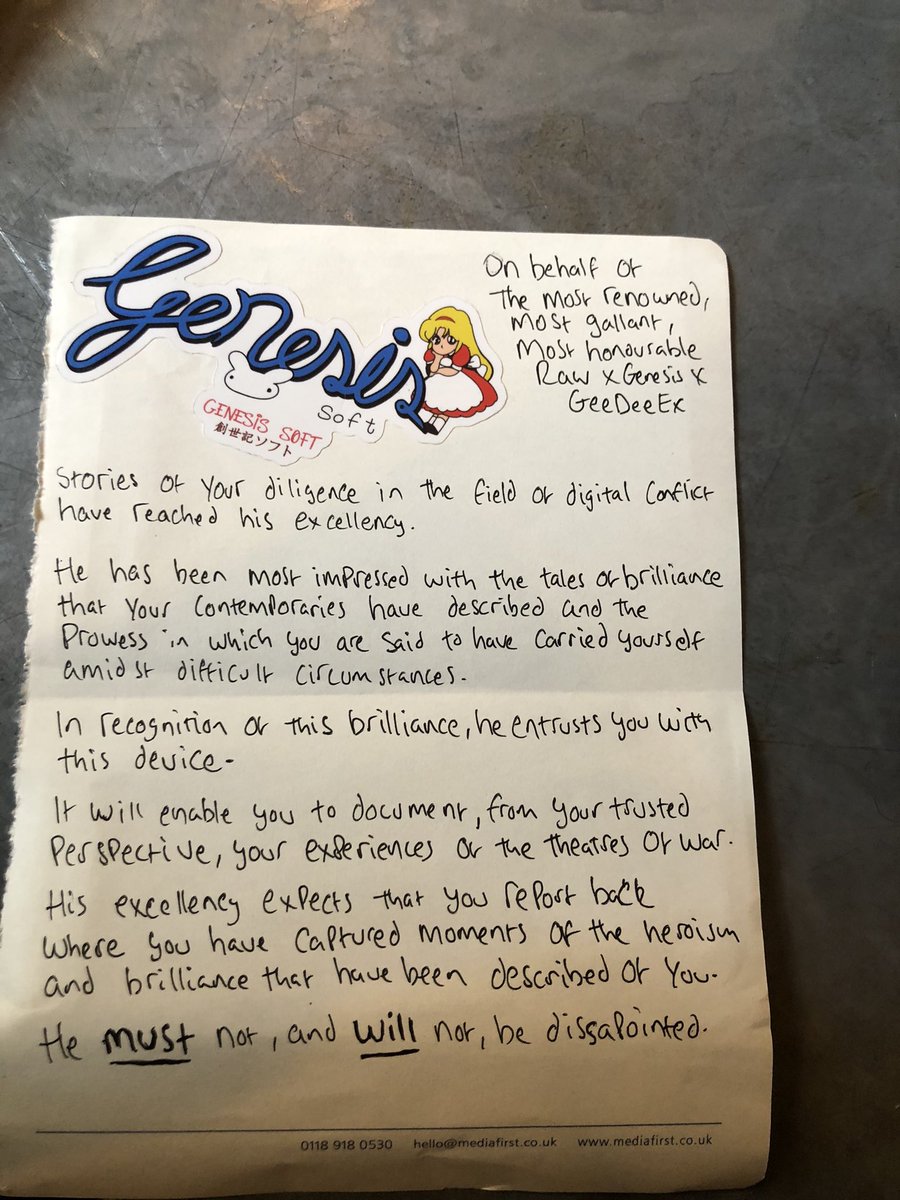 Genesis
Soft
GENESIS SOFT
創世記ソフト
On behalf of
The most renowned,
most gallant,
Most honourable
Raw x Genesis x
GeeDeeEx
Stories of your diligence in the field of digital conflict
have reached his excellency.
He has been most impressed with the tales of brilliance
that your contemporaries have described and the
Prowess in which you are said to have carried yourself
amidst difficult circumstances.
In recognition of this brilliance, he entrusts you with
this device.
It will enable you to document, from your trusted
Perspective, your experiences of the theatres of war.
His excellency expects that you report back
where you have captured moments of the heroism
and brilliance that have been described of you.
He must not, and will not, be dissapointed.
0118 918 0530 hello@mediafirst.co.uk www.mediafirst.co.uk